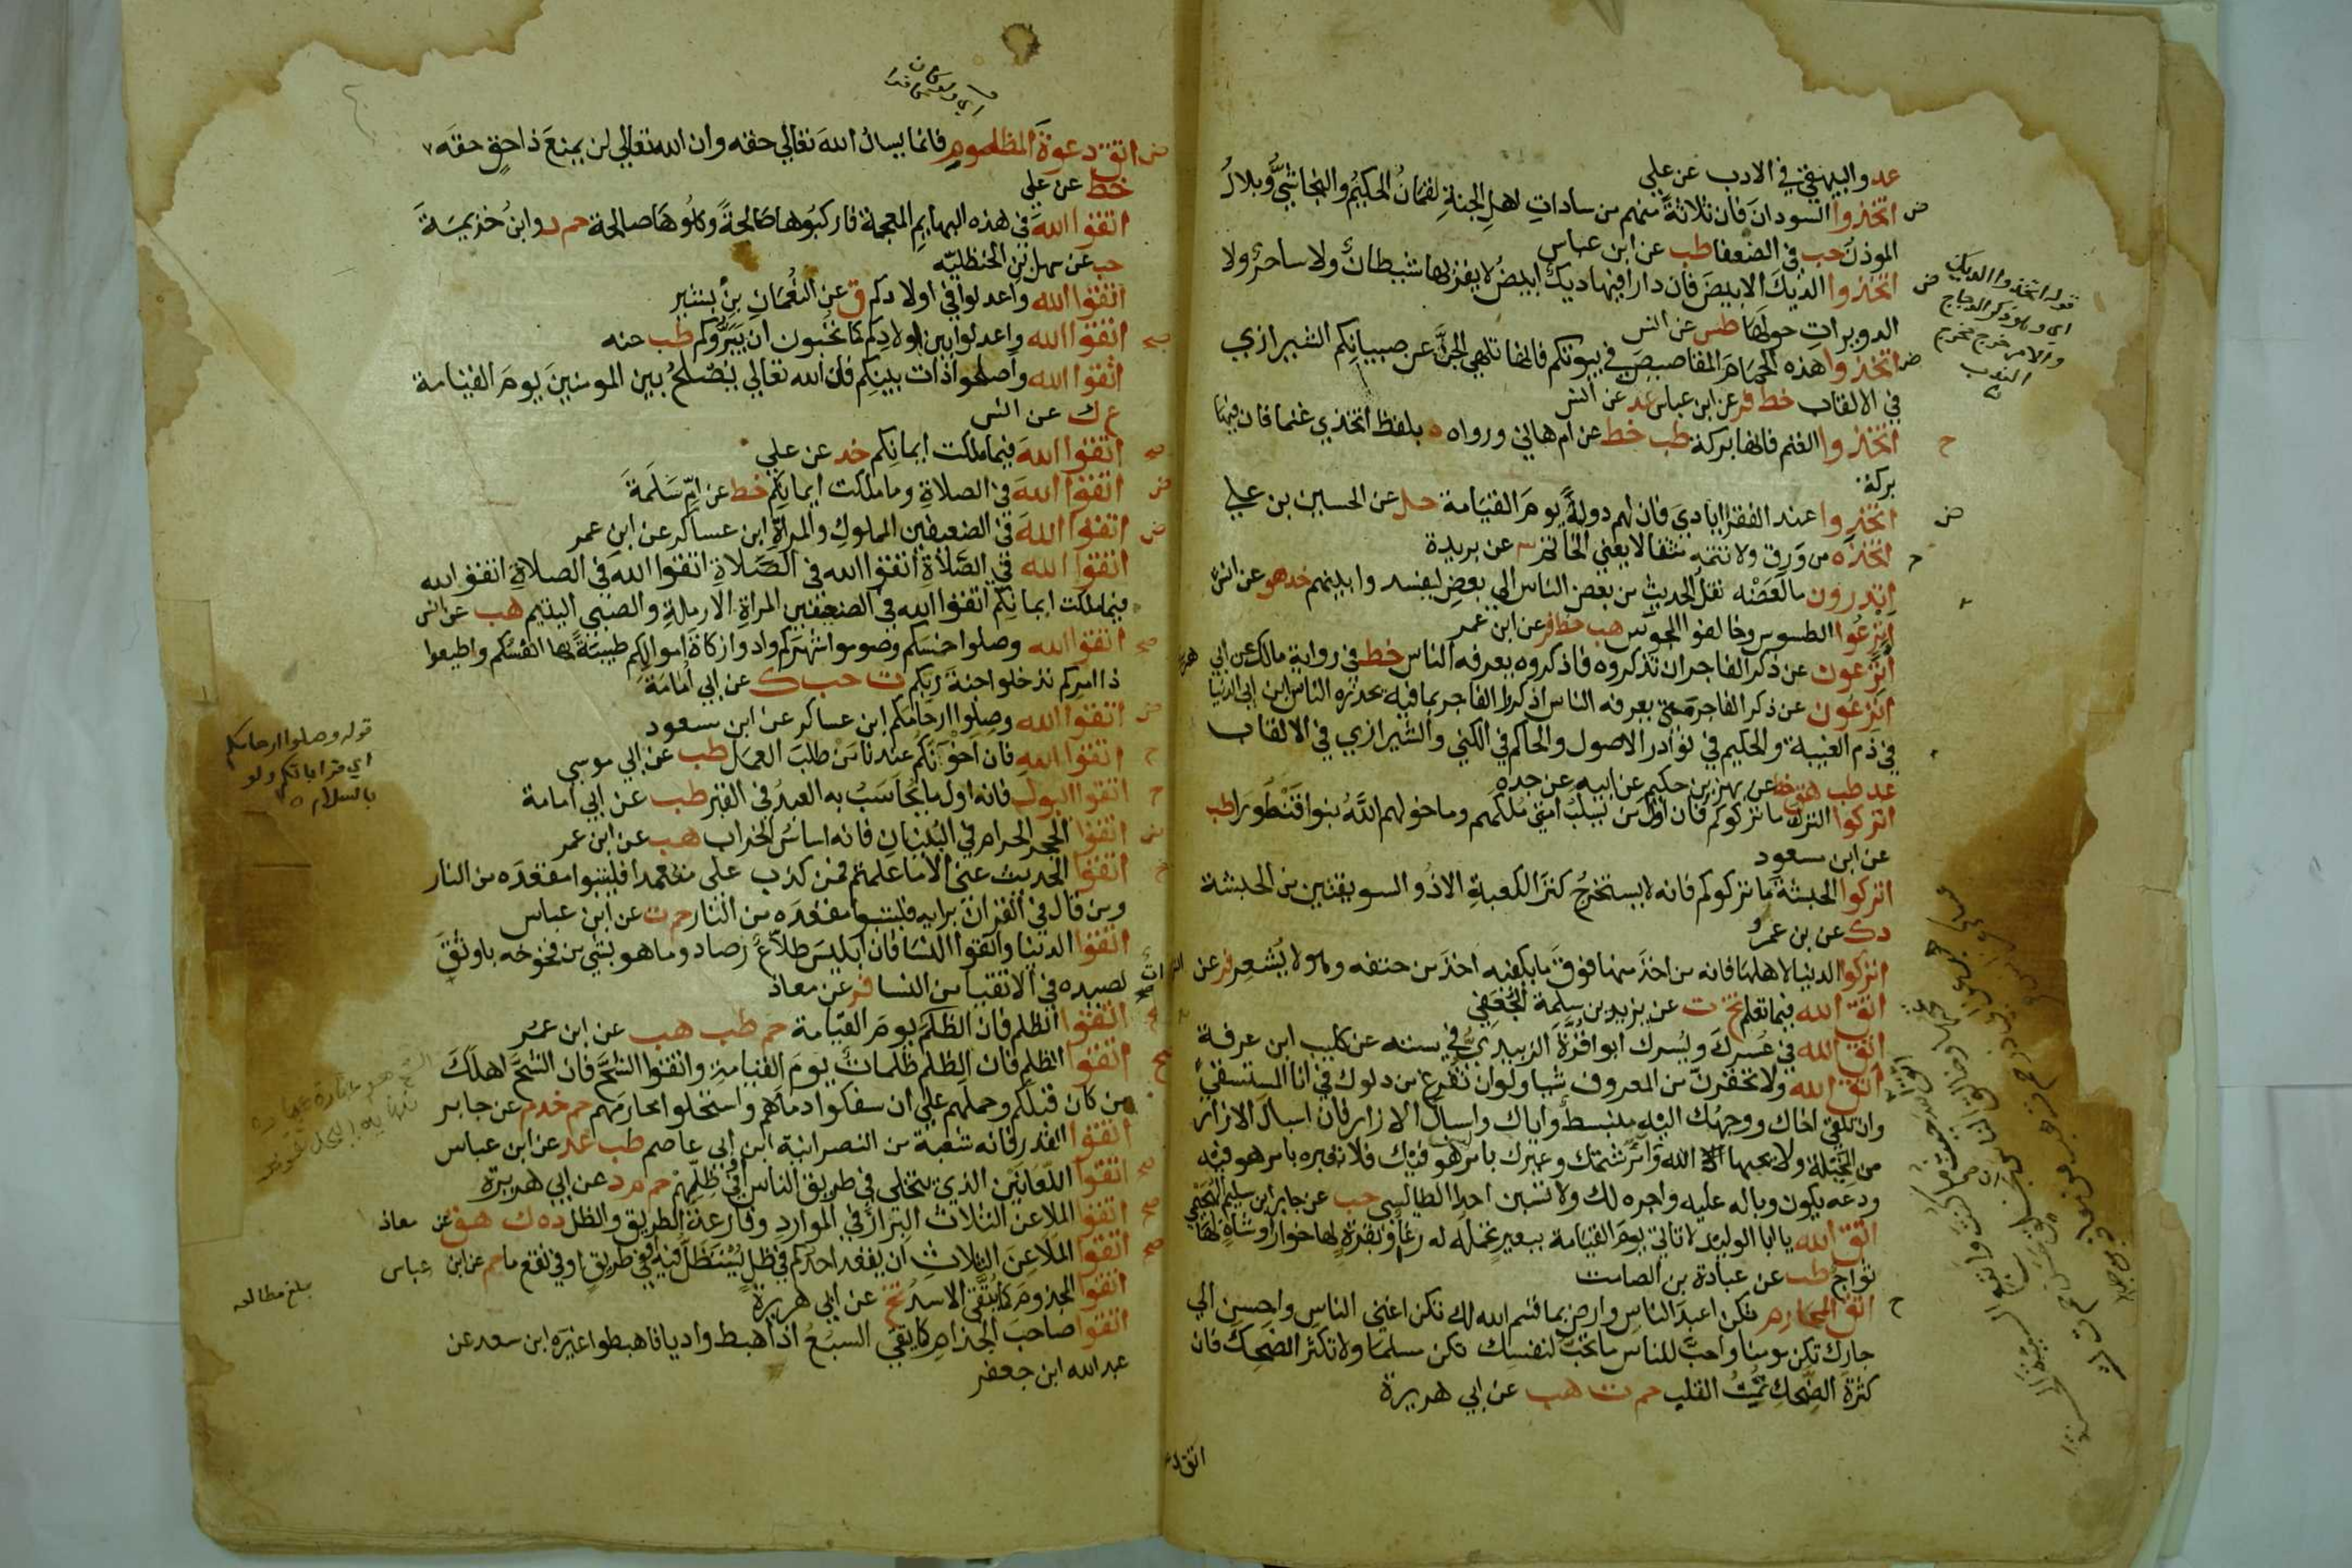 عد والبيهقي في الادب عن علي
اتخذوا السودان فان ثلاثة منهم من سادات اهل الجنة لقمان الحكيم والنجاشي وبلال
الموذن حب في الضعفا طب عن ابن عباس
اتخذوا الديك الابيض فان دارا فيها ديك ابيض لا يقربها شيطان ولا ساحر ولا
الدويرات حولها طس عن انس
اتخذوا هذه الحمام المقاصيص في بيوتكم فانها تلهي الجن عن صبيانكم الشيرازي
في الالقاب خط فر عن ابن عباس عد عن انس
اتخذوا الغنم فانها بركة طب خط عن ام هاني ورواه ه بلفظ اتخذي غنما فان فيها
بركة
اتخذوا عند الفقرا ايادي فان لهم دولة يوم القيامة حل عن الحسين بن علي
اتخذه من ورق ولا تتمه مثقالا يعني الخاتم ٣ عن بريدة
اتدرون ما العضه نقل الحديث من بعض الناس الي بعض ليفسدوا بينهم خد هق عن انس
اترعوا الطسوس وخالفوا المجوس هب خط فر عن ابن عمر
اترعون عن ذكر الفاجر ان تذكروه فاذكروه يعرفه الناس خط في رواية مالك عن ابي هريرة
اترعون عن ذكر الفاجر متي يعرفه الناس اذكروا الفاجر بما فيه يحذره الناس ابن ابي الدنيا
في ذم الغيبة والحكيم في نوادر الاصول والحاكم في الكني والشيرازي في الالقاب
عد طب هق خط عن بهز بن حكيم عن ابيه عن جده
اتركوا الترك ما تركوكم فان اول من يسلب امتي ملكهم وما خولهم الله بنوا قنطورا طب
عن ابن مسعود
اتركوا الحبشة ما تركوكم فانه لا يستخرج كنز الكعبة الا ذو السويقتين من الحبشة
د ك عن بن عمرو
اتركوا الدنيا لاهلها فانه من اخذ منها فوق ما يكفيه اخذ من حتفه وهو لا يشعر فر عن
اتق الله فيما تعلم تخ ت عن يزيد بن سلمة الجعفي
اتق الله في عسرك ويسرك ابوا قرة الزبيدي في سننه عن كليب ابن عرفة
اتق الله ولا تحقرن من المعروف شيا ولو ان تفرغ من دلوك في انا المستسقي
وان تلقي اخاك ووجهك اليه منبسط واياك واسبال الازار فان اسبال الازار
من المخيلة ولا يحبها الله وان امرؤ شتمك وعيرك بامر هو فيك فلا تعيره بامر هو فيه
ودعه يكون وباله عليه واجره لك ولا تسبن احدا الطيالسي حب عن جابر ابن سليم الهجيمي
اتق الله يا ابا الوليد لا تاتي يوم القيامة ببعير تحمله له رغا او بقرة لها خوار او شاة لها
ثواج طب عن عبادة بن الصامت
اتق المحارم تكن اعبد الناس وارض بما قسم الله لك تكن اغني الناس واحسن الي
جارك تكن مومنا واحب للناس ما تحب لنفسك تكن مسلما ولا تكثر الضحك فان
كثرة الضحك تميت القلب حم ت هب عن ابي هريرة
قوله اتخذوا الديك
والامر خرج مخرج
الندب
اتق دعوة المظلوم فانما يسال الله تعالي حقه وان الله تعالي لن يمنع ذا حق حقه
خط عن علي
اتقوا الله في هذه البهايم المعجمة فاركبوها صالحة وكلوها صالحة حم د وابن خزيمة
حب عن سهل بن الحنظلية
اتقوا الله واعدلوا في اولادكم ق عن النعمان بن بشير
اتقوا الله واعدلوا بين اولادكم كما تحبون ان يبروكم طب عنه
اتقوا الله واصلحوا ذات بينكم فان الله تعالي يصلح بين المومنين يوم القيامة
ع ك عن انس
اتقوا الله فيما ملكت ايمانكم خد عن علي
اتقوا الله في الصلاة وما ملكت ايمانكم خط عن ام سلمة
اتقوا الله في الضعيفين المملوك والمراة ابن عساكر عن ابن عمر
اتقوا الله في الصلاة اتقوا الله في الصلاة اتقوا الله في الصلاة اتقوا الله
فيما ملكت ايمانكم اتقوا الله في الضعيفين المراة الارملة والصبي اليتيم هب عن انس
اتقوا الله وصلوا خمسكم وصوموا شهركم وادوا زكاة اموالكم طيبة بها انفسكم واطيعوا
ذا امركم تدخلوا جنة ربكم ت حب ك عن ابي امامة
اتقوا الله وصلوا ارحامكم ابن عساكر عن ابن مسعود
اتقوا الله فان اخونكم عندنا من طلب العمل طب عن ابي موسي
اتقوا البول فانه اول ما يحاسب به العبد في القبر طب عن ابي امامة
اتقوا الحجر الحرام في البنيان فانه اساس الخراب هب عن ابن عمر
اتقوا الحديث عني الا ما علمتم فمن كذب علي متعمدا فليتبوا مقعده من النار
ومن قال في القران برايه فليتبوا مقعده من النار حم ت عن ابن عباس
اتقوا الدنيا واتقوا النسا فان ابليس طلاع رصاد وما هو بشي من فخوخه باوثق
لصيده في الاتقيا من النسا فر عن معاذ
اتقوا الظلم فان الظلم يوم القيامة حم طب هب عن ابن عمر
اتقوا الظلم فان الظلم ظلمات يوم القيامة واتقوا الشح فان الشح اهلك
من كان قبلكم وحملهم علي ان سفكوا دماهم واستحلوا محارمهم حم خد م عن جابر
اتقوا القدر فانه شعبة من النصرانية ابن ابي عاصم طب عد عن ابن عباس
اتقوا اللعانين الذي يتخلي في طريق الناس او في ظلهم حم م د عن ابي هريرة
اتقوا الملاعن الثلاث البراز في الموارد وقارعة الطريق والظل د ه ك هق عن معاذ
اتقوا الملاعن الثلاث ان يقعد احدكم في ظل يستظل فيه او في طريق او في نقع ما حم عن ابن عباس
اتقوا المجذوم كما يتقي الاسد تخ عن ابي هريرة
اتقوا صاحب الجذام كما يتقي السبع اذا هبط واديا فاهبطوا غيره ابن سعد عن
عبد الله ابن جعفر
قوله وصلوا ارحامكم
اي قراباتكم ولو
بالسلام
بلغ مطالعه